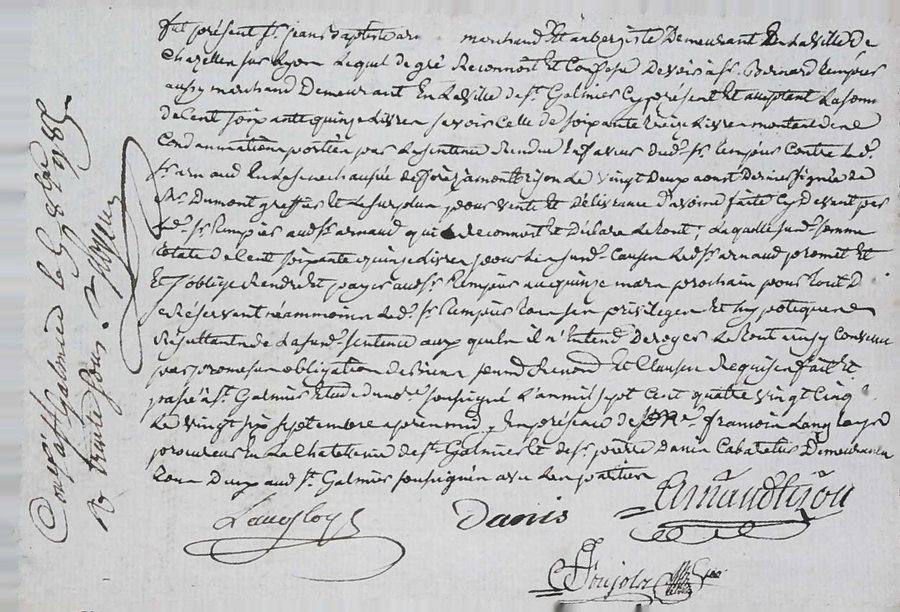 fut présent Sr. jean Baptiste arn marchand Et aubergiste Demeurant En la ville de
Chazelles sur Lyon Lequel de gré Reconnoit Et Confesse Devoir à Sr. Bernard
aussy marchand Demeurant En La ville de St. Galmier Cy présent Et acceptant La somme
de Cent soixante quinze Livres savoir Celle de soixante treize Livres montant de
Condamnation portée par La sentence Rendue En faveur dud. Sr. Contre Led.
Sr. arnaud En La senechaussée de forez à montbrison Le vingt Deux aoust Dernier signée
Dumont greffier Et Le surplus pour vente Et Délivrance D'avoine faite Cy Devant par
Led. Sr. aud. Sr. arnaud qui Le reconnoit Et Déclare Le tout, Laquelle susd. somme
totale de Cent soixante quinze Livres pour Les susd. Causes Led. Sr. arnaud promet Et
Et s'oblige Rendre Et payer aud. Sr. au quinze mars prochain pour tout D
se Réservent néammoins Led. Sr. son privilege Et hypotique
Résultant de La susd. sentence auxquels il n'Entend Deroger Le tout ainsy Convenu
par promesse obligation de Biens Renond. Et Clauses Requises fait Et
passé à St. Galmier Etude du no.re soussigné L'an mil sept Cent quatre vingt Cinq
Le vingt six septembre après midy, En présence de Sr. Me. francois Langloys
procureur En La Chatelenie de St. Galmier Et de Sr. pierre Danis Cabaretier Demeurant
tous Deux aud. St. Galmier soussignés avec Les parties
Langloys
Danis
Arnaudtizon
Boujola
Con.lé à St Galmier le 8 8bre 1785
R trente sous.